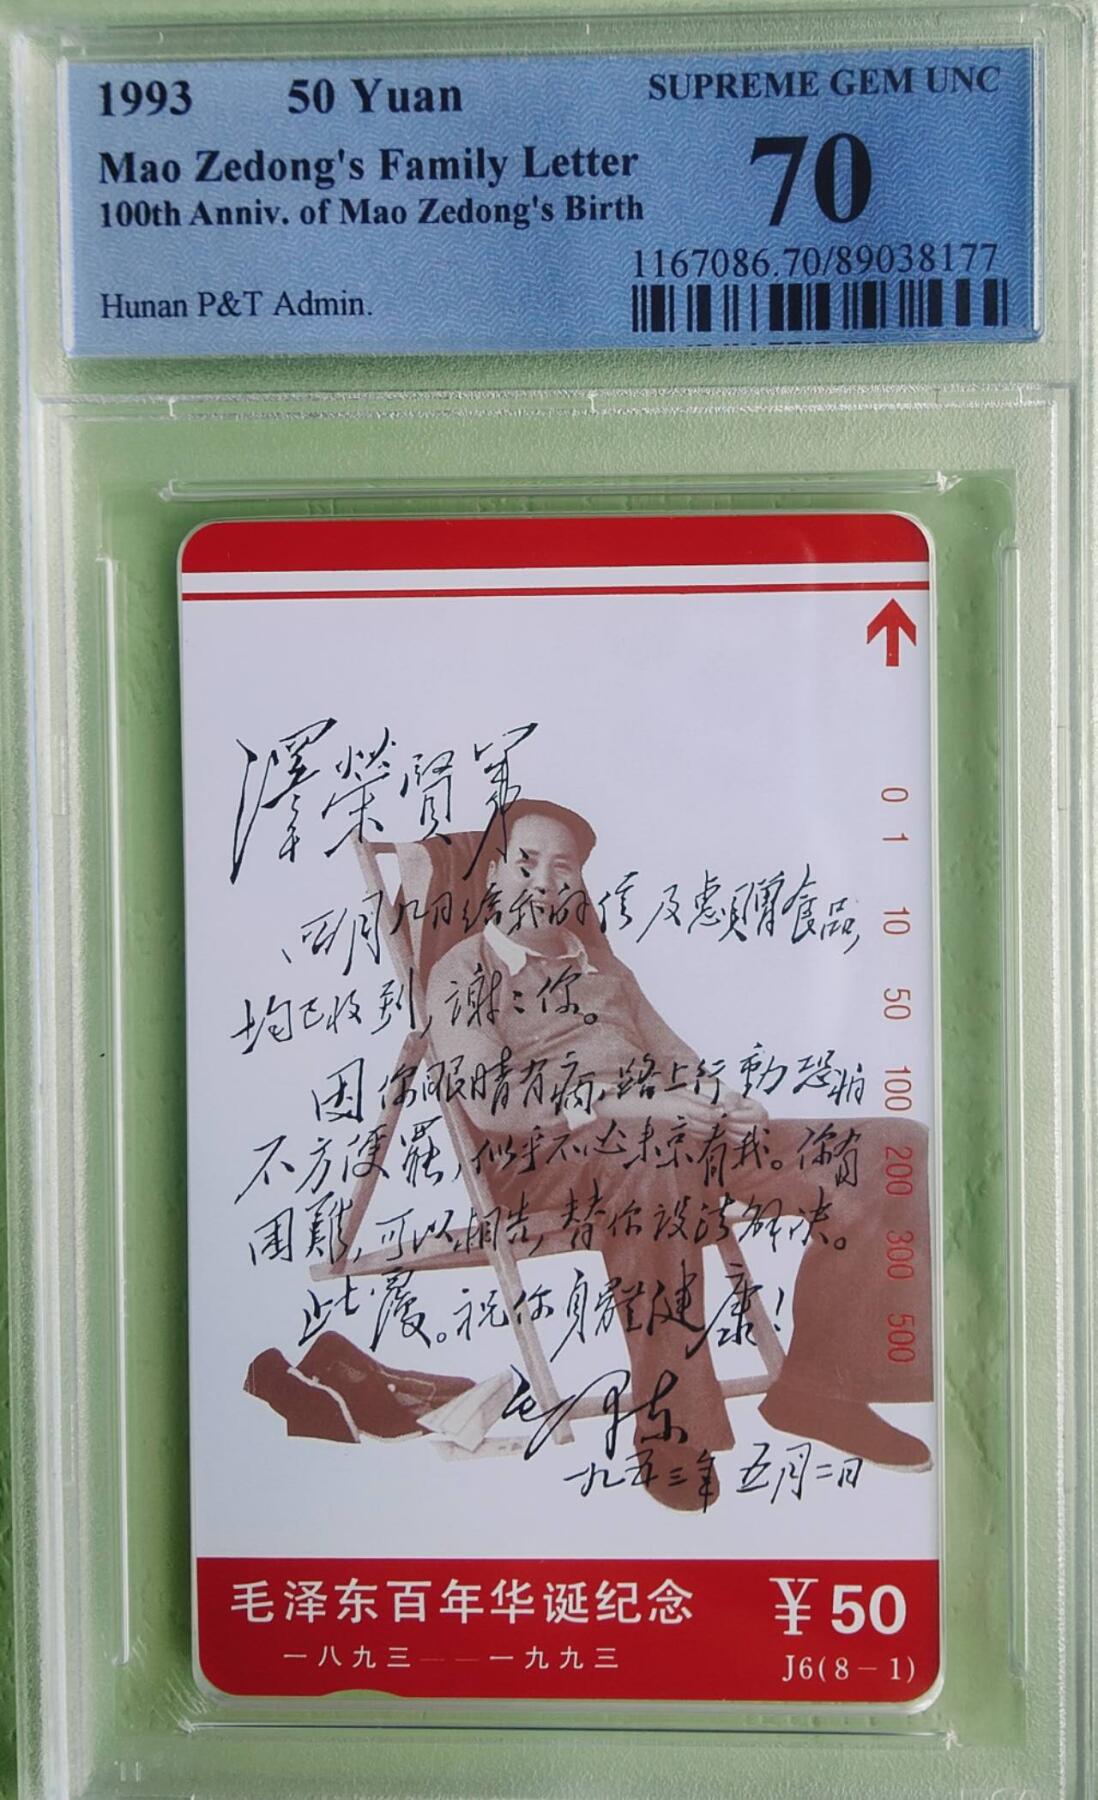 1993 50 Yuan
SUPREME GEM UNC
Mao Zedong's Family Letter
70
100th Anniv. of Mao Zedong's Birth
1167086.70/89038177
Hunan P&T Admin.
澤榮賢弟：
四月九日給我的信及惠贈食品，
均已收到，謝〻你。
因你眼睛有病，路上行動恐怕
不方便罷，似乎不必来京看我。你有
困難，可以相告，替你設法解决。
此覆。祝你身體健康！
毛泽东
一九五三年五月二日
0
1
10
50
100
200
300
500
毛泽东百年华诞纪念
¥50
一八九三——一九九三
J6(8－1)